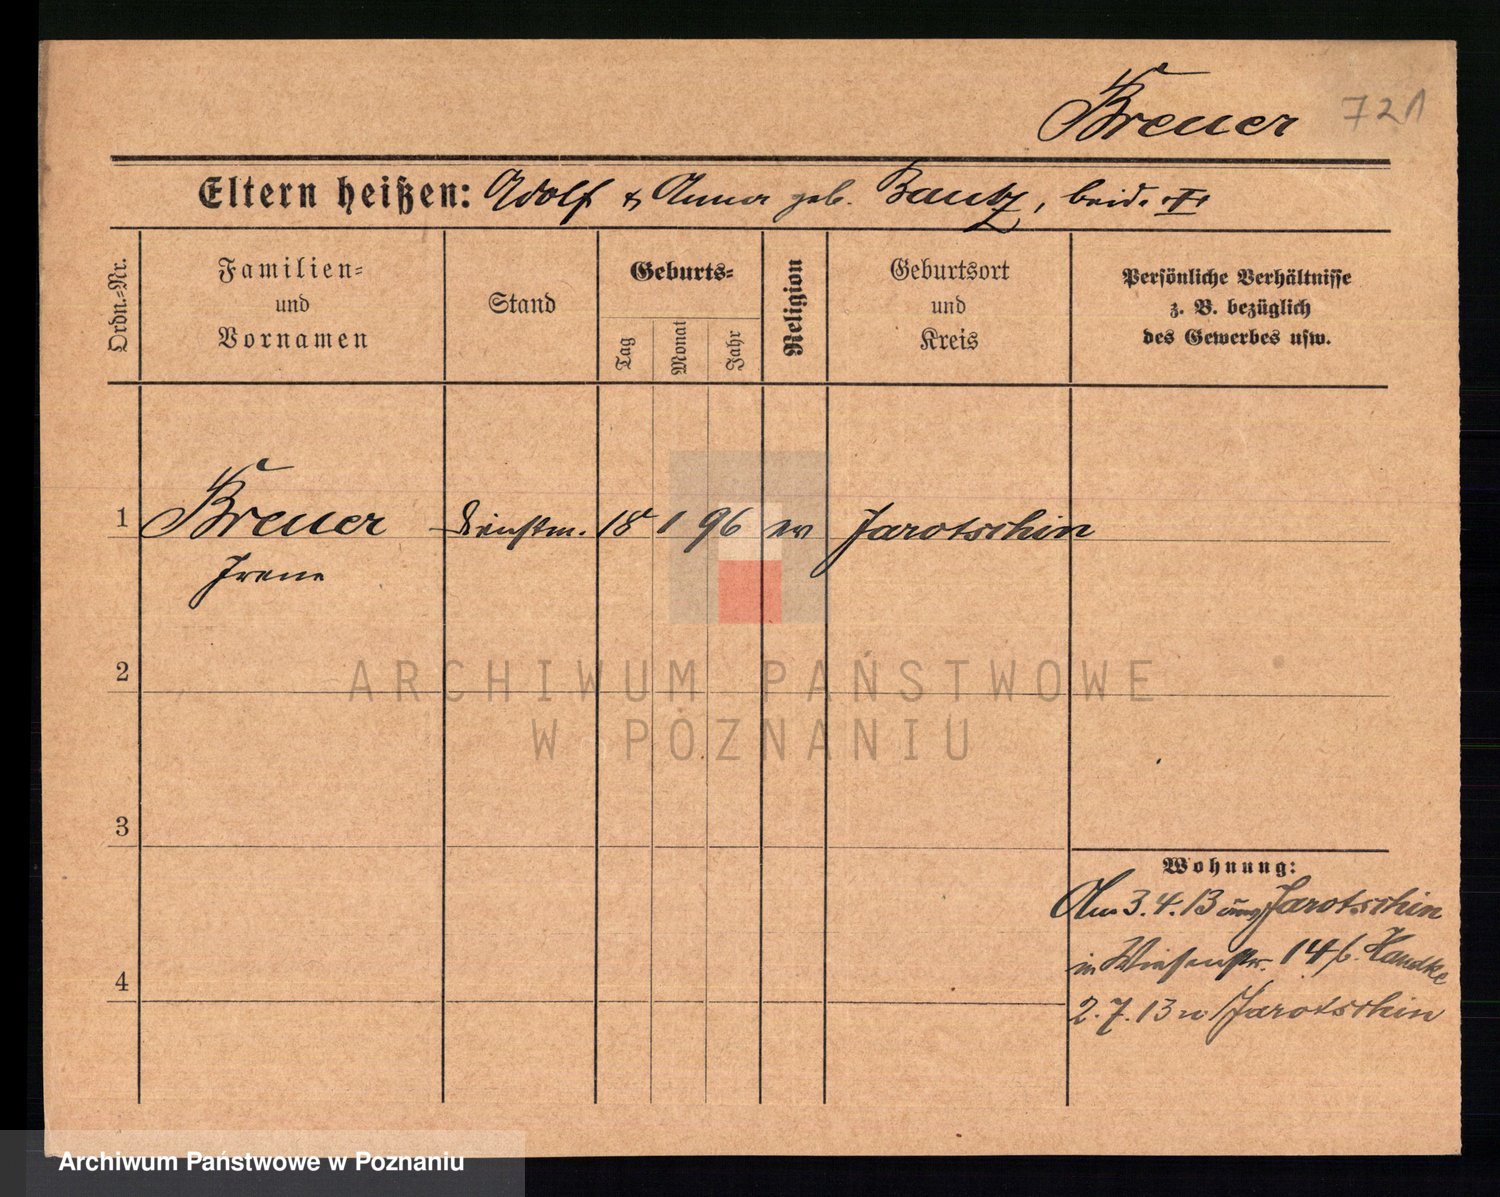 Breuer 721
Eltern heißen: Adolf & Anna geb. Bautz, beide †
Ordn.-Nr.
Familien-
und
Vornamen
Stand
Geburts-
Tag
Monat
Jahr
Religion
Geburtsort
und
Kreis
Persönliche Verhältnisse
z. B. bezüglich
des Gewerbes usw.
1 Breuer Dienstm. 18 1 96 ev Jarotschin
Irene
2
3
4
Wohnung:
Am 3.4.13 Jarotschin
in Wiesenstr. 14 b. Handke
2.7.13 n/Jarotschin
ARCHIWUM PAŃSTWOWE
W POZNANIU
Archiwum Państwowe w Poznaniu